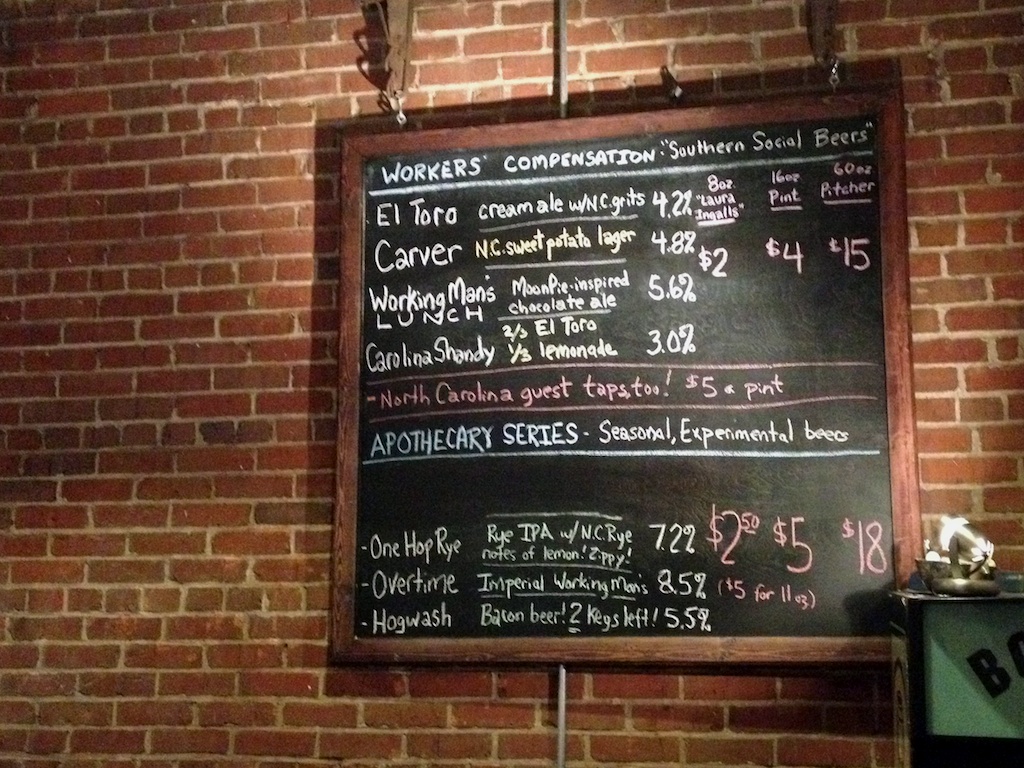 WORKERS' COMPENSATION: "Southern Social Beers"
8oz "Laura Ingalls" 16oz Pint 60oz Pitcher
El Toro cream ale w/N.C. grits 4.2%
Carver N.C. sweet potato lager 4.8% $2 $4 $15
Working Man's LUNCH MoonPie-inspired chocolate ale 5.6%
Carolina Shandy 2/3 El Toro 1/3 lemonade 3.0%
- North Carolina guest taps, too! $5 a pint
APOTHECARY SERIES - Seasonal, Experimental beers
- One Hop Rye Rye IPA w/ N.C. Rye notes of lemon! Zippy! 7.2% $2.50 $5 $18
- Overtime Imperial Working Man's 8.5% ($5 for 11oz)
- Hogwash Bacon beer! 2 kegs left! 5.5%